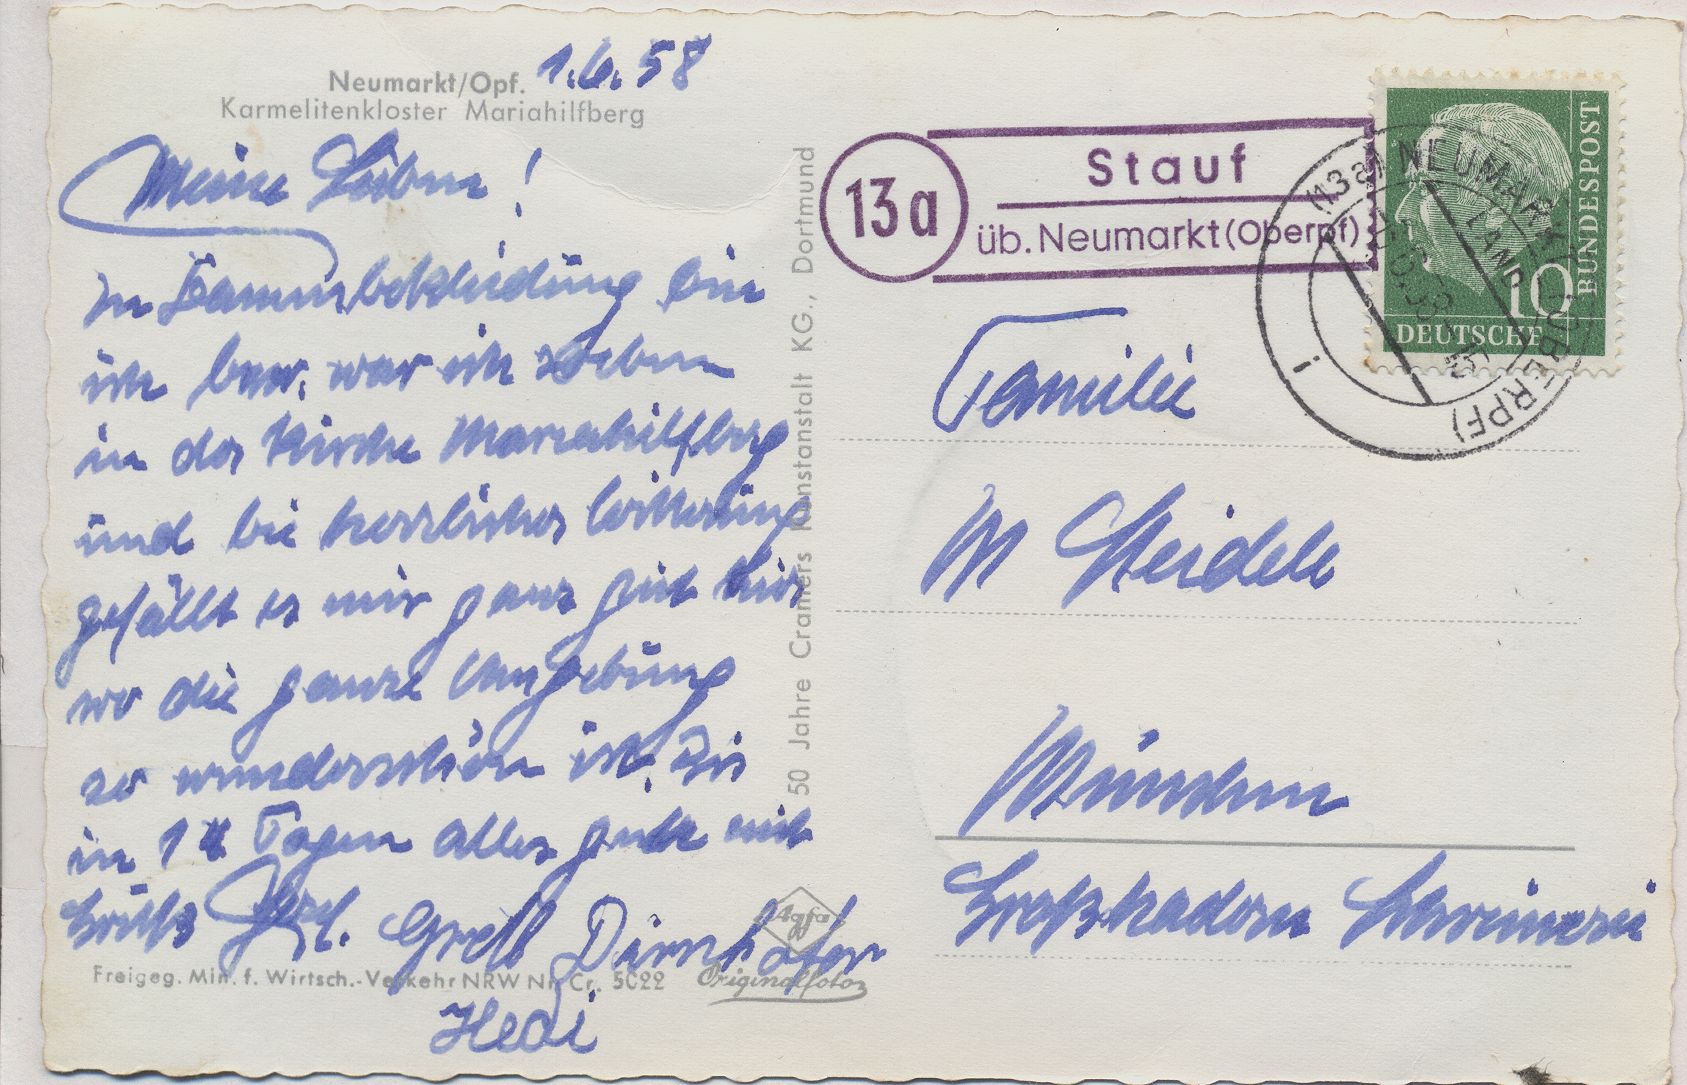 Neumarkt/Opf. 1.6.58
Karmelitenkloster Mariahilfberg
Meine Lieben!
In
ich war ich soeben
in der Kirche Mariahilfberg
und bei herrlicher Witterung
gefällt es mir ganz gut hier
wo die ganze Umgebung
so wunderschön ist. Bis
in 14 Tagen alles gute mit
Grüße Gretl Dirnhofer
Hedi
Freigeg. Min. f. Wirtsch.-Verkehr NRW Nr. Cr. 5022
Agfa
Originalfoto
50 Jahre Cramers Kunstanstalt KG., Dortmund
13a
Stauf
üb. Neumarkt (Oberpf)
(13a) NEUMARKT (OBERPF)
LAND
i
DEUTSCHE
BUNDESPOST
10
Familie
M Steidele
München
Großhadern